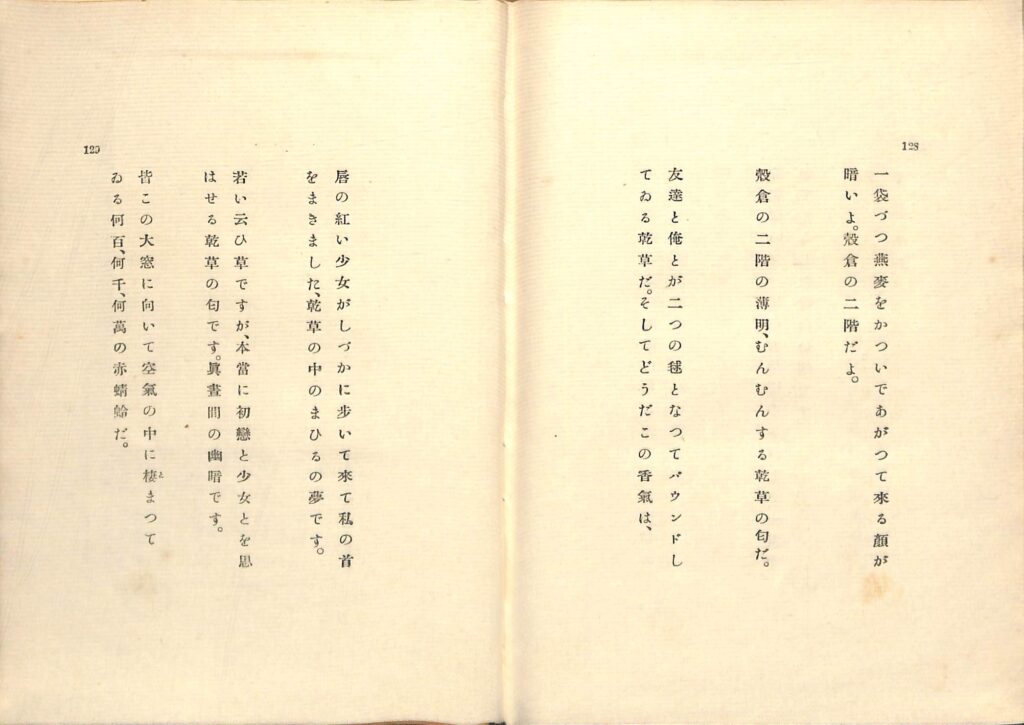 128
一袋づつ燕麥をかついであがつて來る顏が
暗いよ。穀倉の二階だよ。
穀倉の二階の薄明、むんむんする乾草の匂だ。
友達と俺とが二つの毬となつてバウンドし
てゐる乾草だ。そしてどうだこの香氣は、
129
唇の紅い少女がしづかに步いて來て私の首
をまきました、乾草の中のまひるの夢です。
若い云ひ草ですが、本當に初戀と少女とを思
はせる乾草の匂です。眞晝間の幽暗です。
皆この大窓に向いて空氣の中に棲まつて
ゐる何百、何千、何萬の赤蜻蛉だ。
と